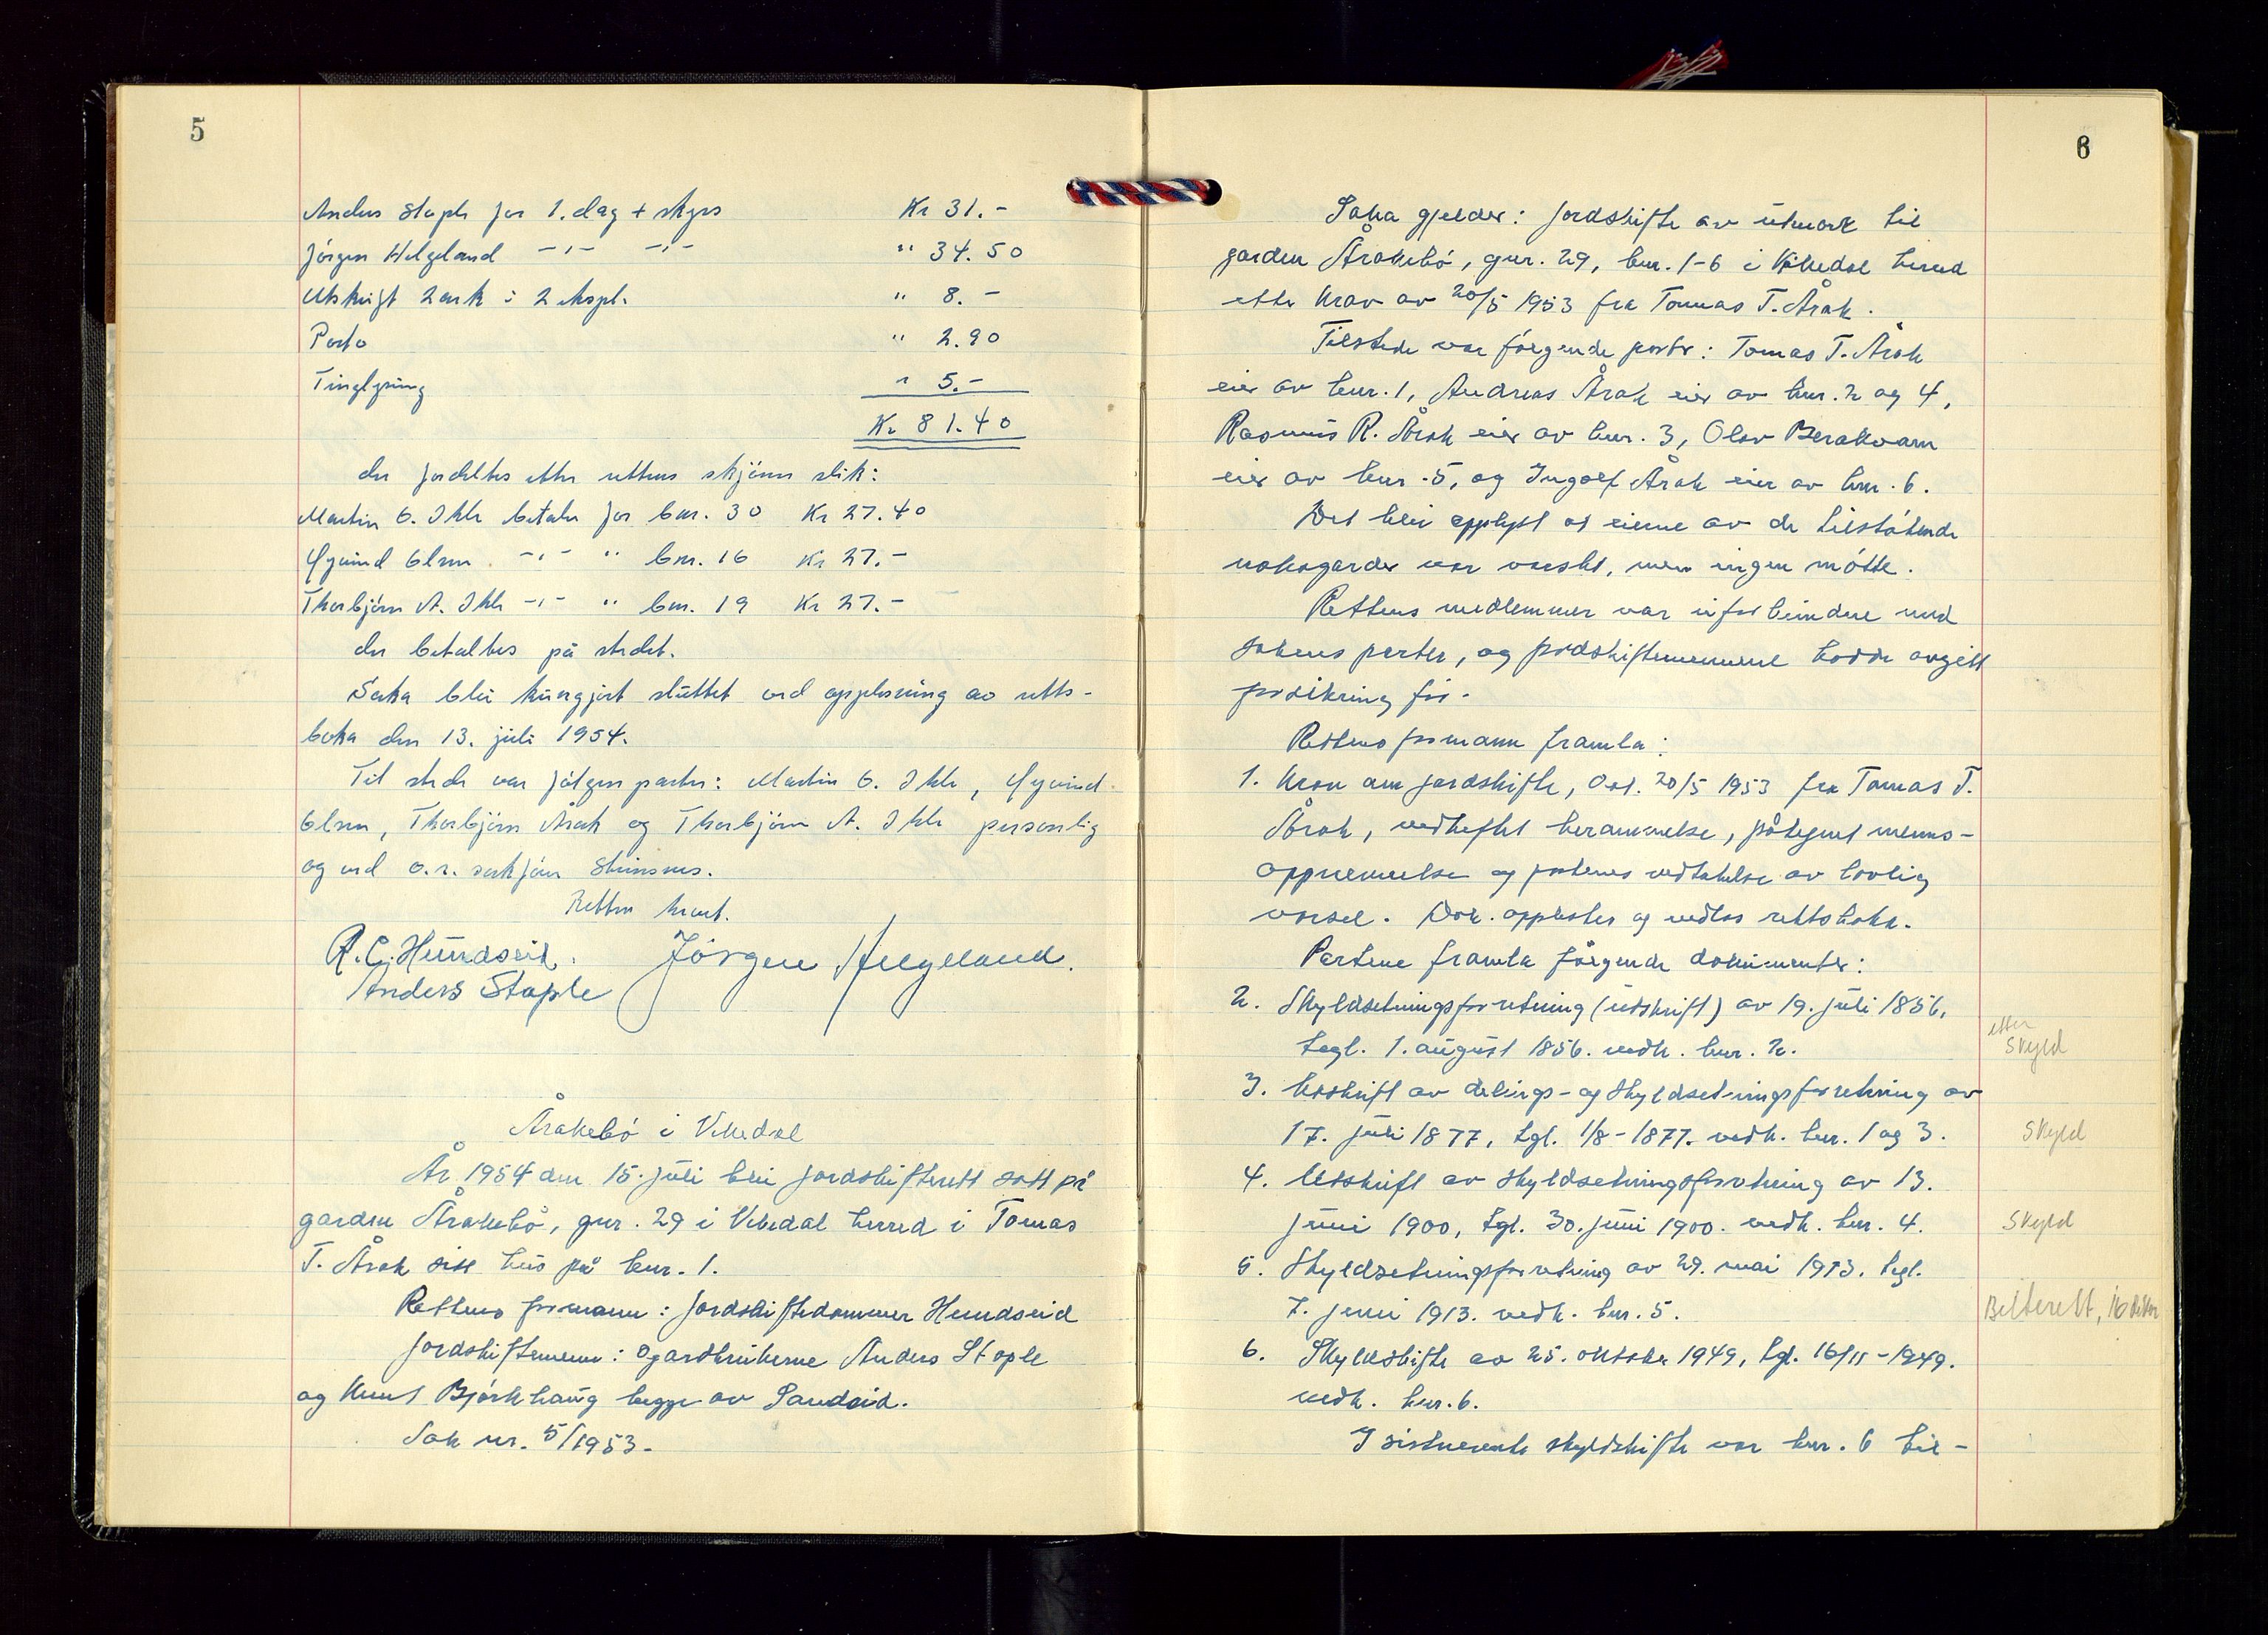 5
Anders Stople for 1. dag + skyss Kr 31.-
Jørgen Helgeland -"- -"- " 34.50
Utskrift 2 ark i 2 ekspl. " 8.-
Porto " 2.90
Tinglysing " 5.-
Kr 81.40
der fordeltes etter rettens skjönn slik:
Martin O. Ikle betaler for bnr. 30 Kr 27.40
Øyvind Olsen -"- " bnr. 16 Kr 27.-
Thorbjörn A. Ikle -"- " bnr. 19 Kr 27.-
der betaltes på stedet.
Saka blei kunngjort sluttet ved opplesning av retts-
boka den 13. juli 1954.
Til stede var følgen parter: Martin O. Ikle, Øyvind
Olsen, Thorbjörn Årak og Thorbjörn A. Ikle personlig
og ved o.r. sakfører
Retten hevet.
R.C. Hundseid. Jörgen Helgeland.
Anders Stople
Årakebö i Vikedal
År 1954 den 15. juli blei jordskifterett satt på
garden Årakebö, gnr. 29 i Vikedal herred i Tomas
T. Årak sitt hus på bnr. 1.
Rettens formann: Jordskiftedommer Hundseid
Jordskiftemenn: gardbrukerne Anders Stople
og Knut Björkhaug begge av Sandeid.
Sak nr. 5/1953.
6
Saka gjelder: Jordskifte av utmark til
garden Årakebö, gnr. 29, bnr. 1-6 i Vikedal herred
etter krav av 20/5 1953 fra Tomas T. Årak.
Tilstede var fölgende parter: Tomas T. Årak
eier av bnr. 1, Andreas Årak eier av bnr. 2 og 4,
Rasmus R. Årak eier av bnr. 3, Olav Berakvam
eier av bnr. 5, og Ingolf Årak eier av bnr. 6.
Det blei opplyst at eierne av de tilstötende
nabogarder var varslet, men ingen mötte.
Rettens medlemmer var uforbeindene med
sakens parter, og jordskiftemennene hadde avgitt
forsikring för.
Rettens formann framla:
1. Krav om jordskifte, dat. 20/5 1953 fra Tomas T.
Årak, vedheftet berammelse, påtegnet menns-
oppnemnelse og partenes vedtakelse av lovlig
varsel. Dok. opplestes og vedlas rettsboka.
Partene framla fölgende dokumenter:
2. Skyldsetningsforretning (utskrift) av 19. juli 1856,
tegl. 1. august 1856. vedk. bnr. 2.
etter
Skyld
3. Utskrift av delings- og skyldsetningsforretning av
17. juli 1877, tgl. 1/8-1877. vedk. bnr. 1 og 3.
Skyld
4. Utskrift av skyldsetningsforretning av 13.
juni 1900, tgl. 30. juni 1900. vedk. bnr. 4.
Skyld
5. Skyldsetningsforretning av 29. mai 1913. tegl.
7. juni 1913. vedk. bnr. 5.
Beiterett, 16
6. Skyldskifte av 25. oktober 1949, tgl. 16/11-1949.
vedk. bnr. 6.
I sistnevnte skyldskifte var bnr. 6 til-